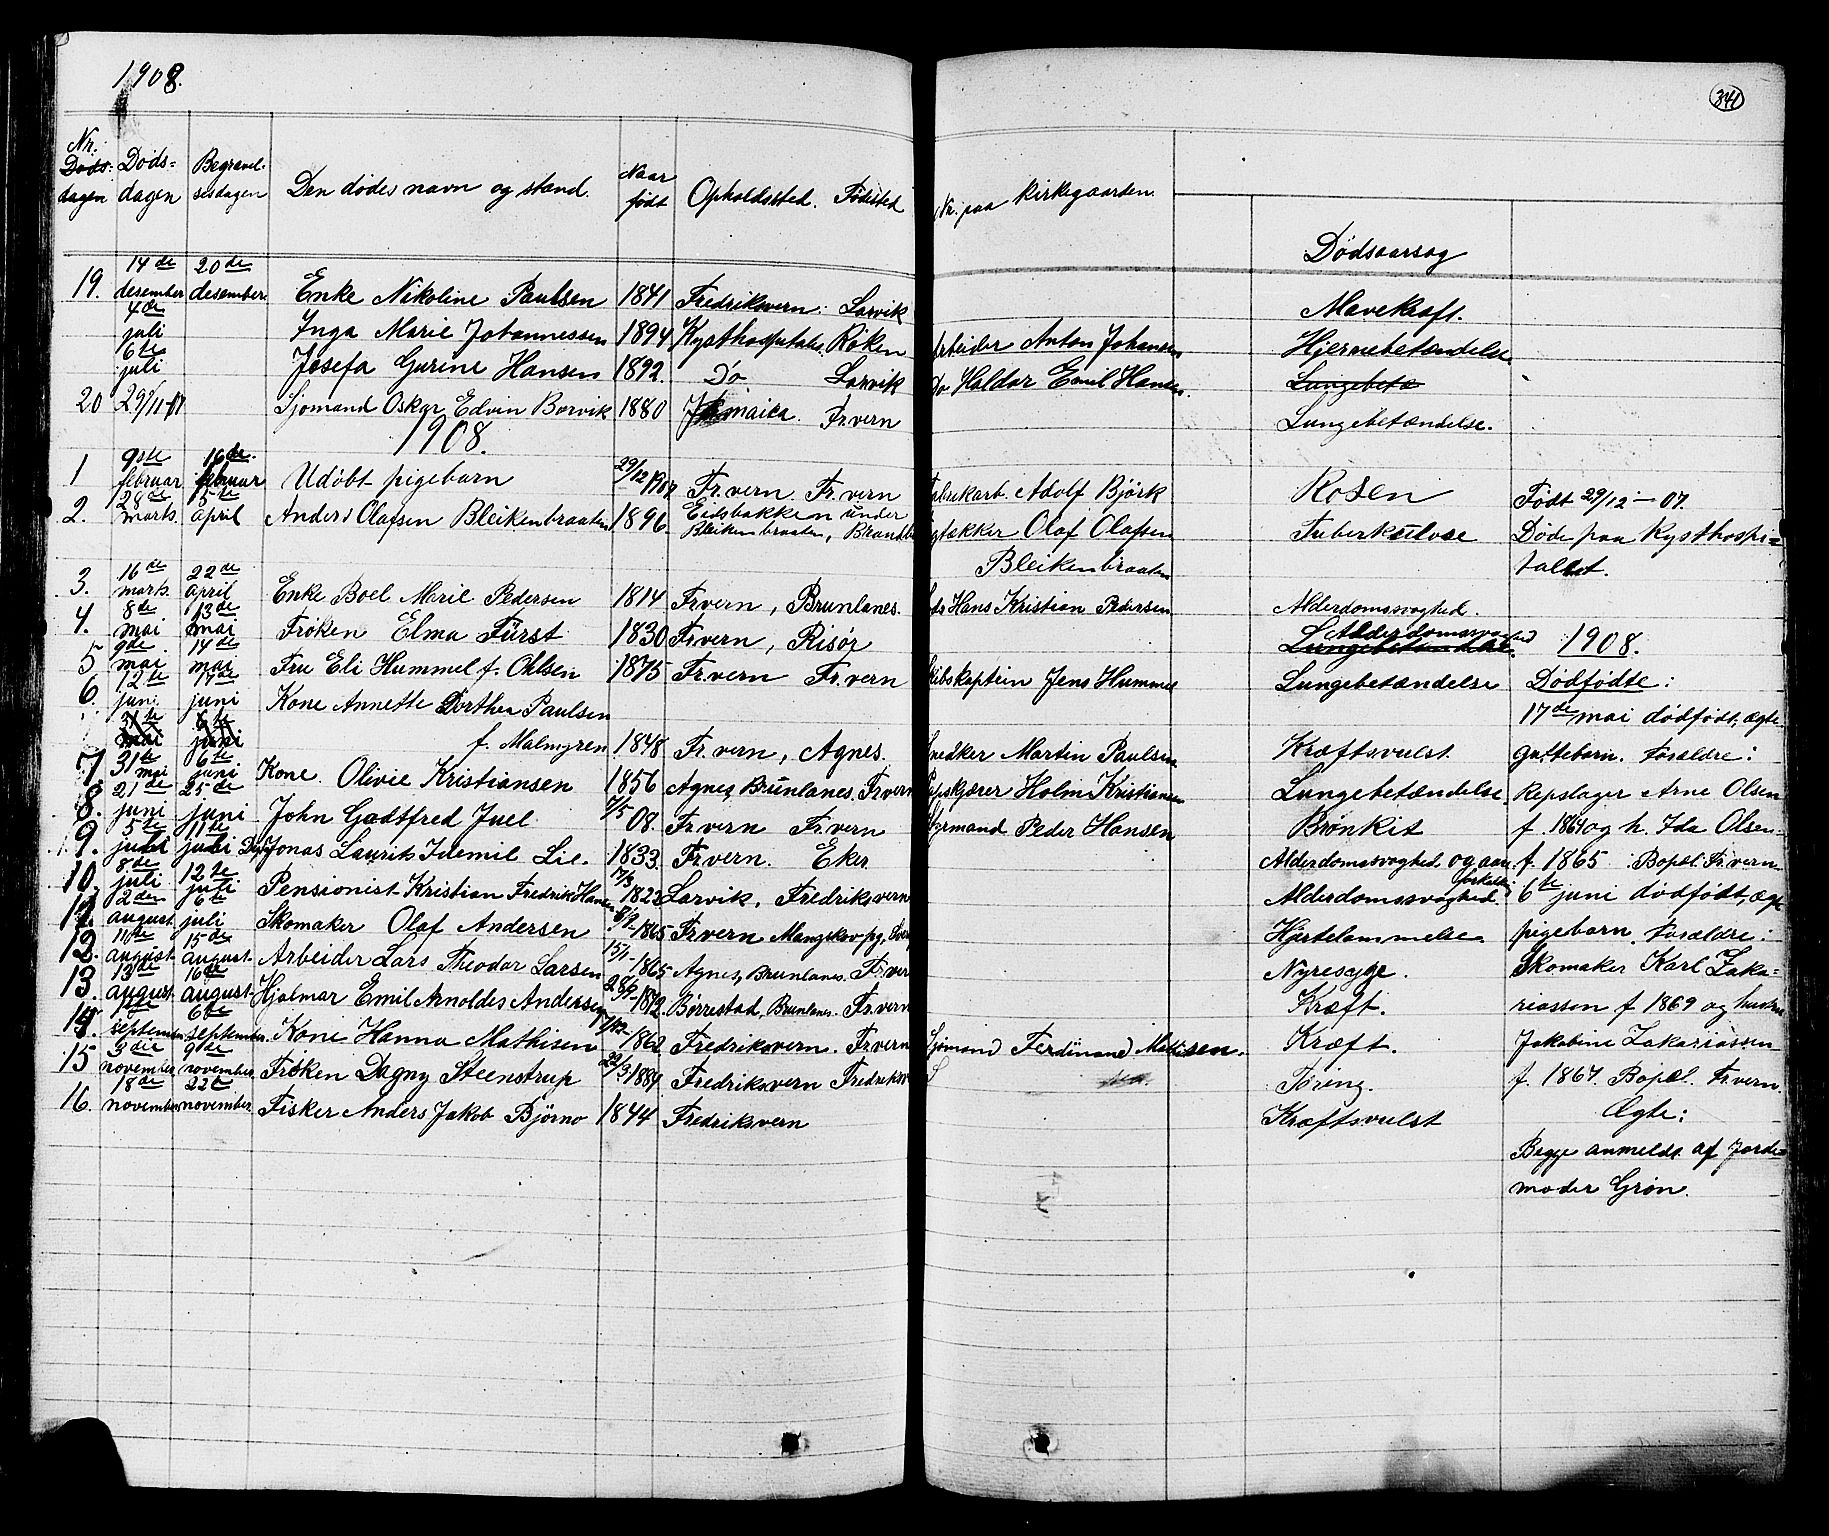 1908.
341
Nr. Døds= Begravel- Den dødes navn og stand. Naar Opholdssted. Fødested Nr. paa Kirkegaarden.
Døds- dagen dagen sesdagen født
Dødsaarsag
14de 20de
19. desember desember Enke Nikoline Paulsen 1841 Fredriksvern. Larvik Mavekræft.
4de
juli Inga Marie Johannessen 1894 Kysthospitalet Røken Arbeider Anton Johansen Hjernebetændelse
6te
juli Josefa Gurine Hansen 1892. Do. Larvik Do Haldor Emil Hansen. Lungebetæ
20 29/11-07 Sjømand Oskar Edvin Borvik 1880 Jamaica. Fr.vern Lungebetændelse.
1908.
9de 16de
1 februar februar Udøbt pigebarn 29/12 1907 Fr.vern. Fr.vern Fabrikarb. Adolf Björk Rosen Født 29/12-07.
28de 5te
2. marts. april Anders Olafsen Bleikenbraaten 1896. Eidsbakken under Bleikenbraaten, Brunl Olaf Olafsen Tuberkulose Døde paa Kysthospi=
Bleikenbraaten
tallet.
16de 22de
3. marts. april Enke Boel Marie Pedersen 1814 Fr.vern, Brunlanes. Hans Kristian Pedersen Alderdomssvaghed.
8de 13de
4. mai mai Frøken Elma Fürst 1830 Fr.vern, Risør Alderdomssvaghed Lungebetændelse. 1908.
9de. 14de
5 mai mai Fru Eli Hummel f. Ohlsen 1875 Fr.vern Fr.vern Skibskaptein Jens Hummel Lungebetændelse Dødfødte:
12te 17de
6. juni juni Kone Annette Dorthea Paulsen 17de mai dødfødt, ægte
31te 6te
mai juni f. Malmgren 1848 Fr.vern, Agnes. Snedker Martin Paulsen Kræftsvulst. guttebarn. Forældre:
31te 6te
7. mai juni Kone Olivie Kristiansen 1856 Agnes, Brunlanes. Fr.vern Holm Kristiansen Lungebetændelse. Repslager Arne Olsen
21de 25de
8. juni juni John Godtfred Juel 7/5 08. Fr.vern Fr.vern Styrmand Peder Hansen Brønkit f. 1864 og h. Ida Olsen
5te 11te
9. juli juli Jonas Laurits Idemil Lie. 1833. Fr.vern. Eker Alderdomssvaghed og aare f. 1865 Bopæl: Fr.vern
forkalkn
8de 12te
10. juli juli Pensionist Kristian Fredrik Hansen 17/3 1823 Larvik. Fredriksvern Alderdomssvaghed 6te juni dødfødt, ægte
2den 6te
11. august juli Skomaker Olaf Andersen 1865 Fr.vern Mangskov pg. Sver Hjertelammelse pigebarn. Forældre:
11te 15de
12. august august Arbeider Lars Theodor Larsen 15/1 1865 Agnes, Brunlanes. Fr.vern Nyresyge. Skomaker Karl Zaka=
13de 16de
13. august august Hjalmar Emil Arnoldes Andersen 28/9 1872. Børrestad, Brunlanes. Fr.vern Kræft. riassen f 1869 og hustru
6te
14. september september Kone Hanna Mathisen 1862 Fredriksvern. Fr.vern Sjømand Ferdinand Mathisen. Kræft. Jakobine Zakariassen
3die 9de
15 november november Frøken Dagny Steenstrup 22/3 1889 Fredriksvern Fredriksv Tæring. f. 1867. Bopæl. Fr.vern.
18de 22de
16. november november Fisker Anders Jakob Bjørno 1844 Fredriksvern Kræftsvulst Ægte:
Begge anmeldt af Jorde=
moder Grøn.